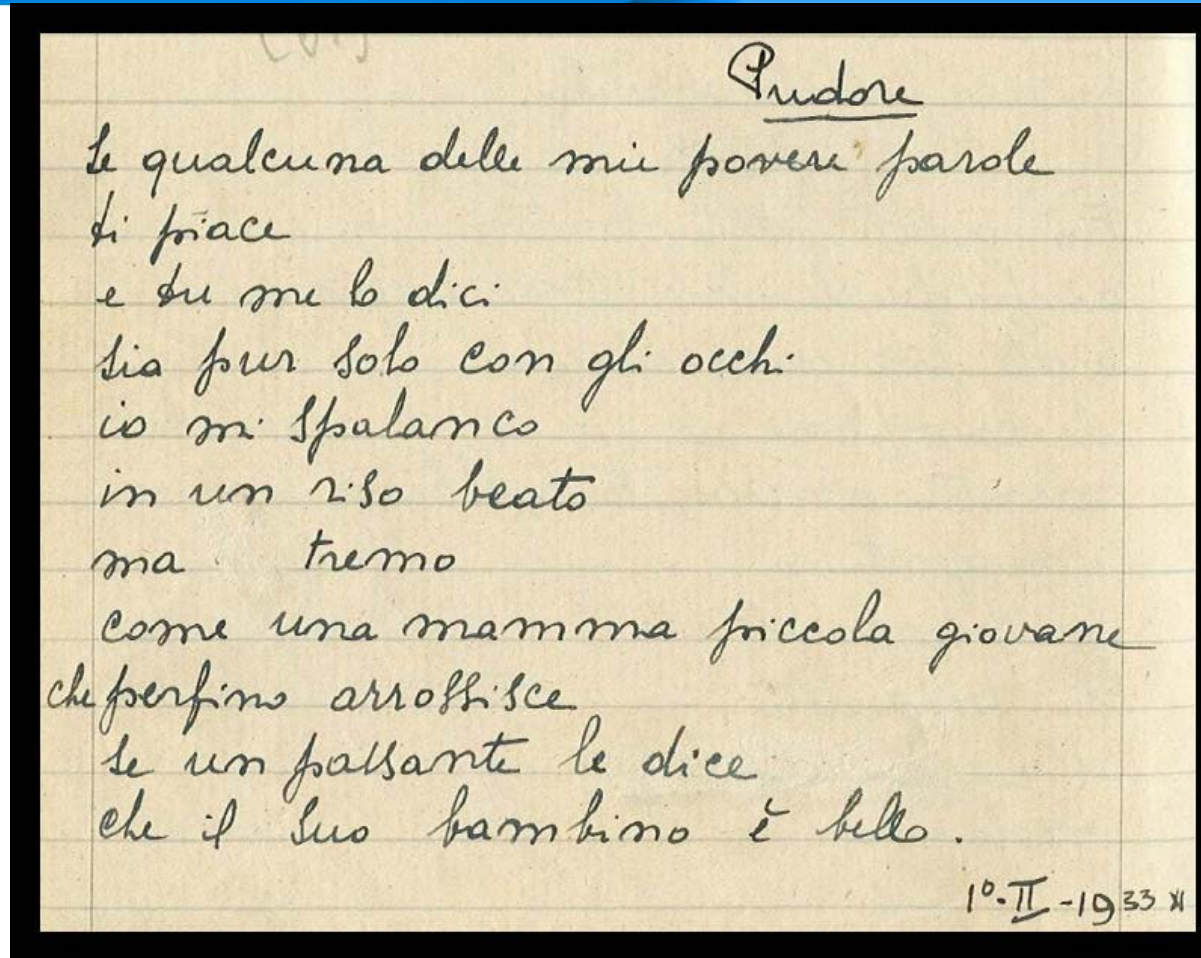 Pudore
Se qualcuna delle mie povere parole
ti piace
e tu me lo dici
sia pur solo con gli occhi
io mi spalanco
in un riso beato
ma tremo
come una mamma piccola giovane
che perfino arrossisce
se un passante le dice
che il suo bambino è bello.
1º-II-1933 XI